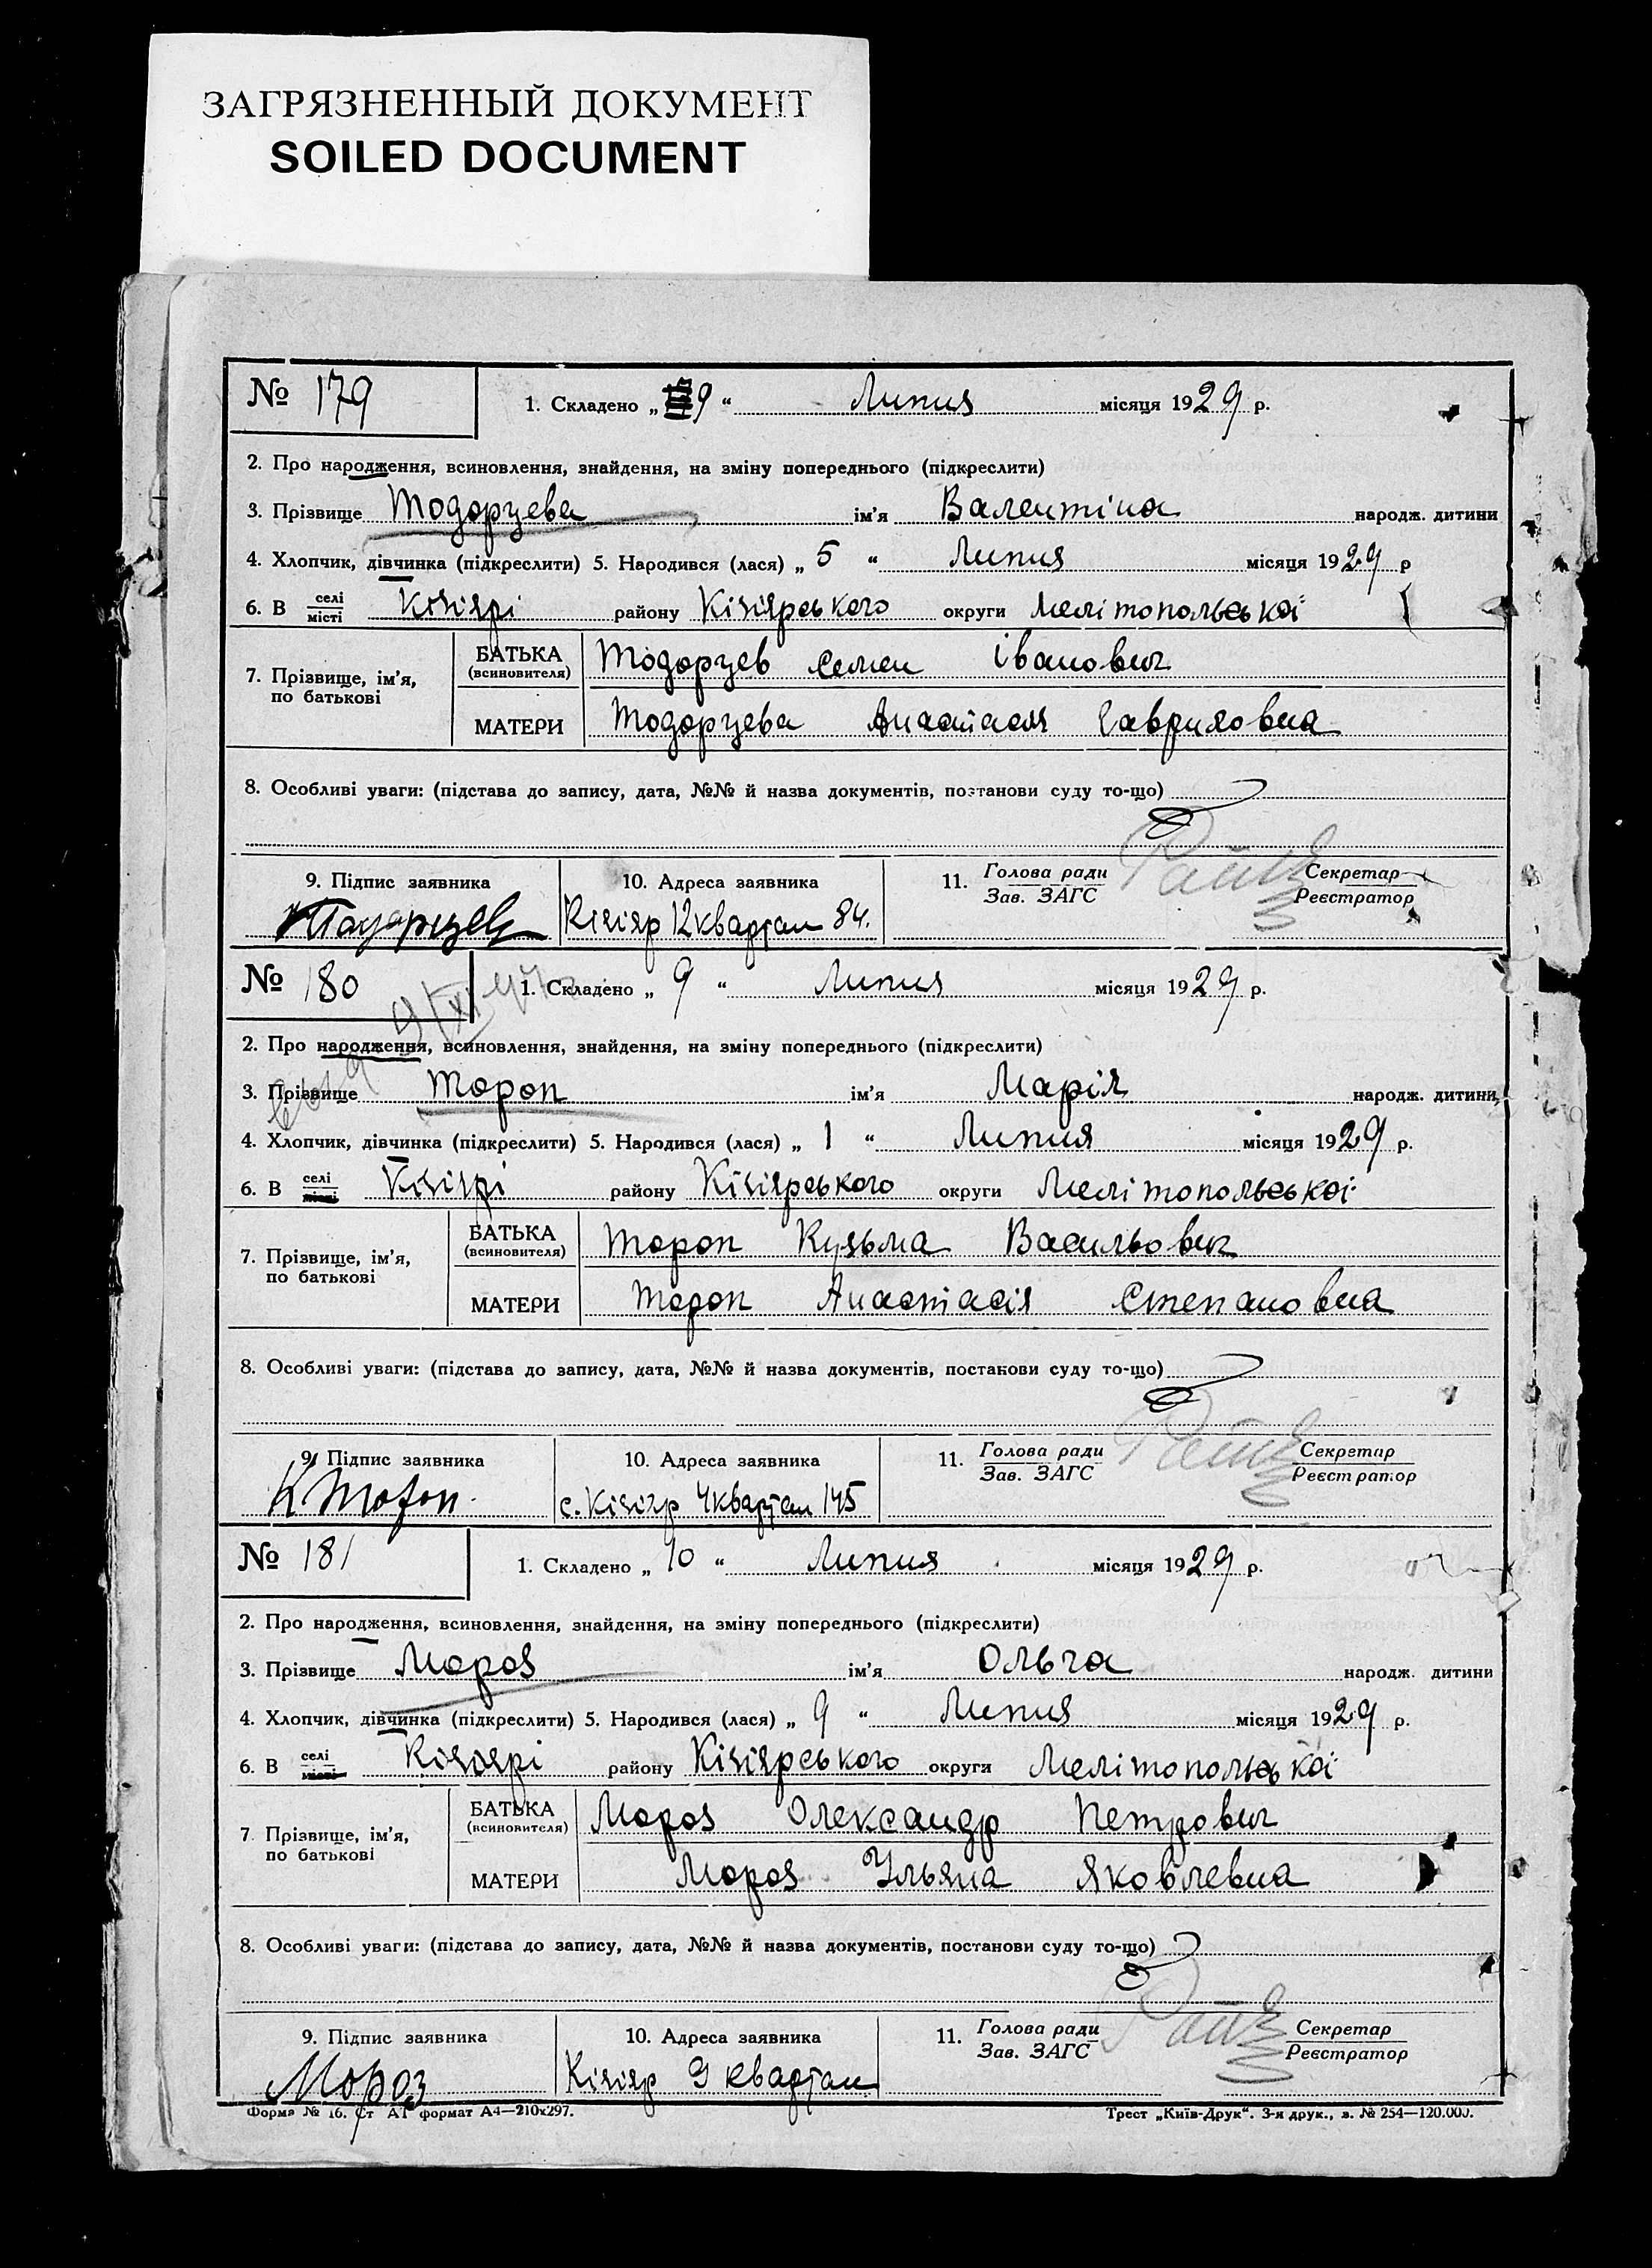 ЗАГРЯЗНЕННЫЙ ДОКУМЕНТ
SOILED DOCUMENT
№ 179
1. Складено „ 9 “ Липня місяця 1929 р.
2. Про народження, всиновлення, знайдення, на зміну попереднього (підкреслити)
3. Прізвище Тодорцева ім'я Валентіна народж. дитини
4. Хлопчик, дівчинка (підкреслити) 5. Народився (лася) „ 5 “ Липня місяця 1929 р
6. В селі місті Кізіярі району Кізіярського округи Мелітопольської
7. Прізвище, ім'я, по батькові
БАТЬКА (всиновителя) Тодорцев Семен Іванович
МАТЕРИ Тодорцева Анастасія Гавриловна
8. Особливі уваги: (підстава до запису, дата, №№ й назва документів, постанови суду то-що)
9. Підпис заявника
10. Адреса заявника Кізіяр 12 квартал 84.
11. Голова ради Зав. ЗАГС Секретар Реєстратор
№ 180
1. Складено „ 9 “ Липня місяця 1929 р.
2. Про народження, всиновлення, знайдення, на зміну попереднього (підкреслити)
3. Прізвище Тороп ім'я Марія народж. дитини
4. Хлопчик, дівчинка (підкреслити) 5. Народився (лася) „ 1 “ Липня місяця 1929 р.
6. В селі місті Кізіярі району Кізіярського округи Мелітопольської
7. Прізвище, ім'я, по батькові
БАТЬКА (всиновителя) Тороп Кузьма Васильович
МАТЕРИ Тороп Анастасія Степановна
8. Особливі уваги: (підстава до запису, дата, №№ й назва документів, постанови суду то-що)
9. Підпис заявника К Тороп
10. Адреса заявника с. Кізіяр 4 квартал 145
11. Голова ради Зав. ЗАГС Секретар Реєстратор
№ 181
1. Складено „ 10 “ Липня місяця 1929 р.
2. Про народження, всиновлення, знайдення, на зміну попереднього (підкреслити)
3. Прізвище Мороз ім'я Ольга народж. дитини
4. Хлопчик, дівчинка (підкреслити) 5. Народився (лася) „ 9 “ Липня місяця 1929 р.
6. В селі місті Кізіярі району Кізіярського округи Мелітопольської
7 Прізвище, ім'я, по батькові
БАТЬКА (всиновителя) Мороз Олександр Петрович
МАТЕРИ Мороз Ульяна Яковлевна
8. Особливі уваги: (підстава до запису, дата, №№ й назва документів, постанови суду то-що)
9. Підпис заявника Мороз
10. Адреса заявника Кізіяр 9 квартал
11. Голова ради Зав. ЗАГС Секретар Реєстратор
Форма № 16. Ст А1 формат А4—210x297.
Трест „Київ-Друк“. 3-я друк., з. № 254—120.000.